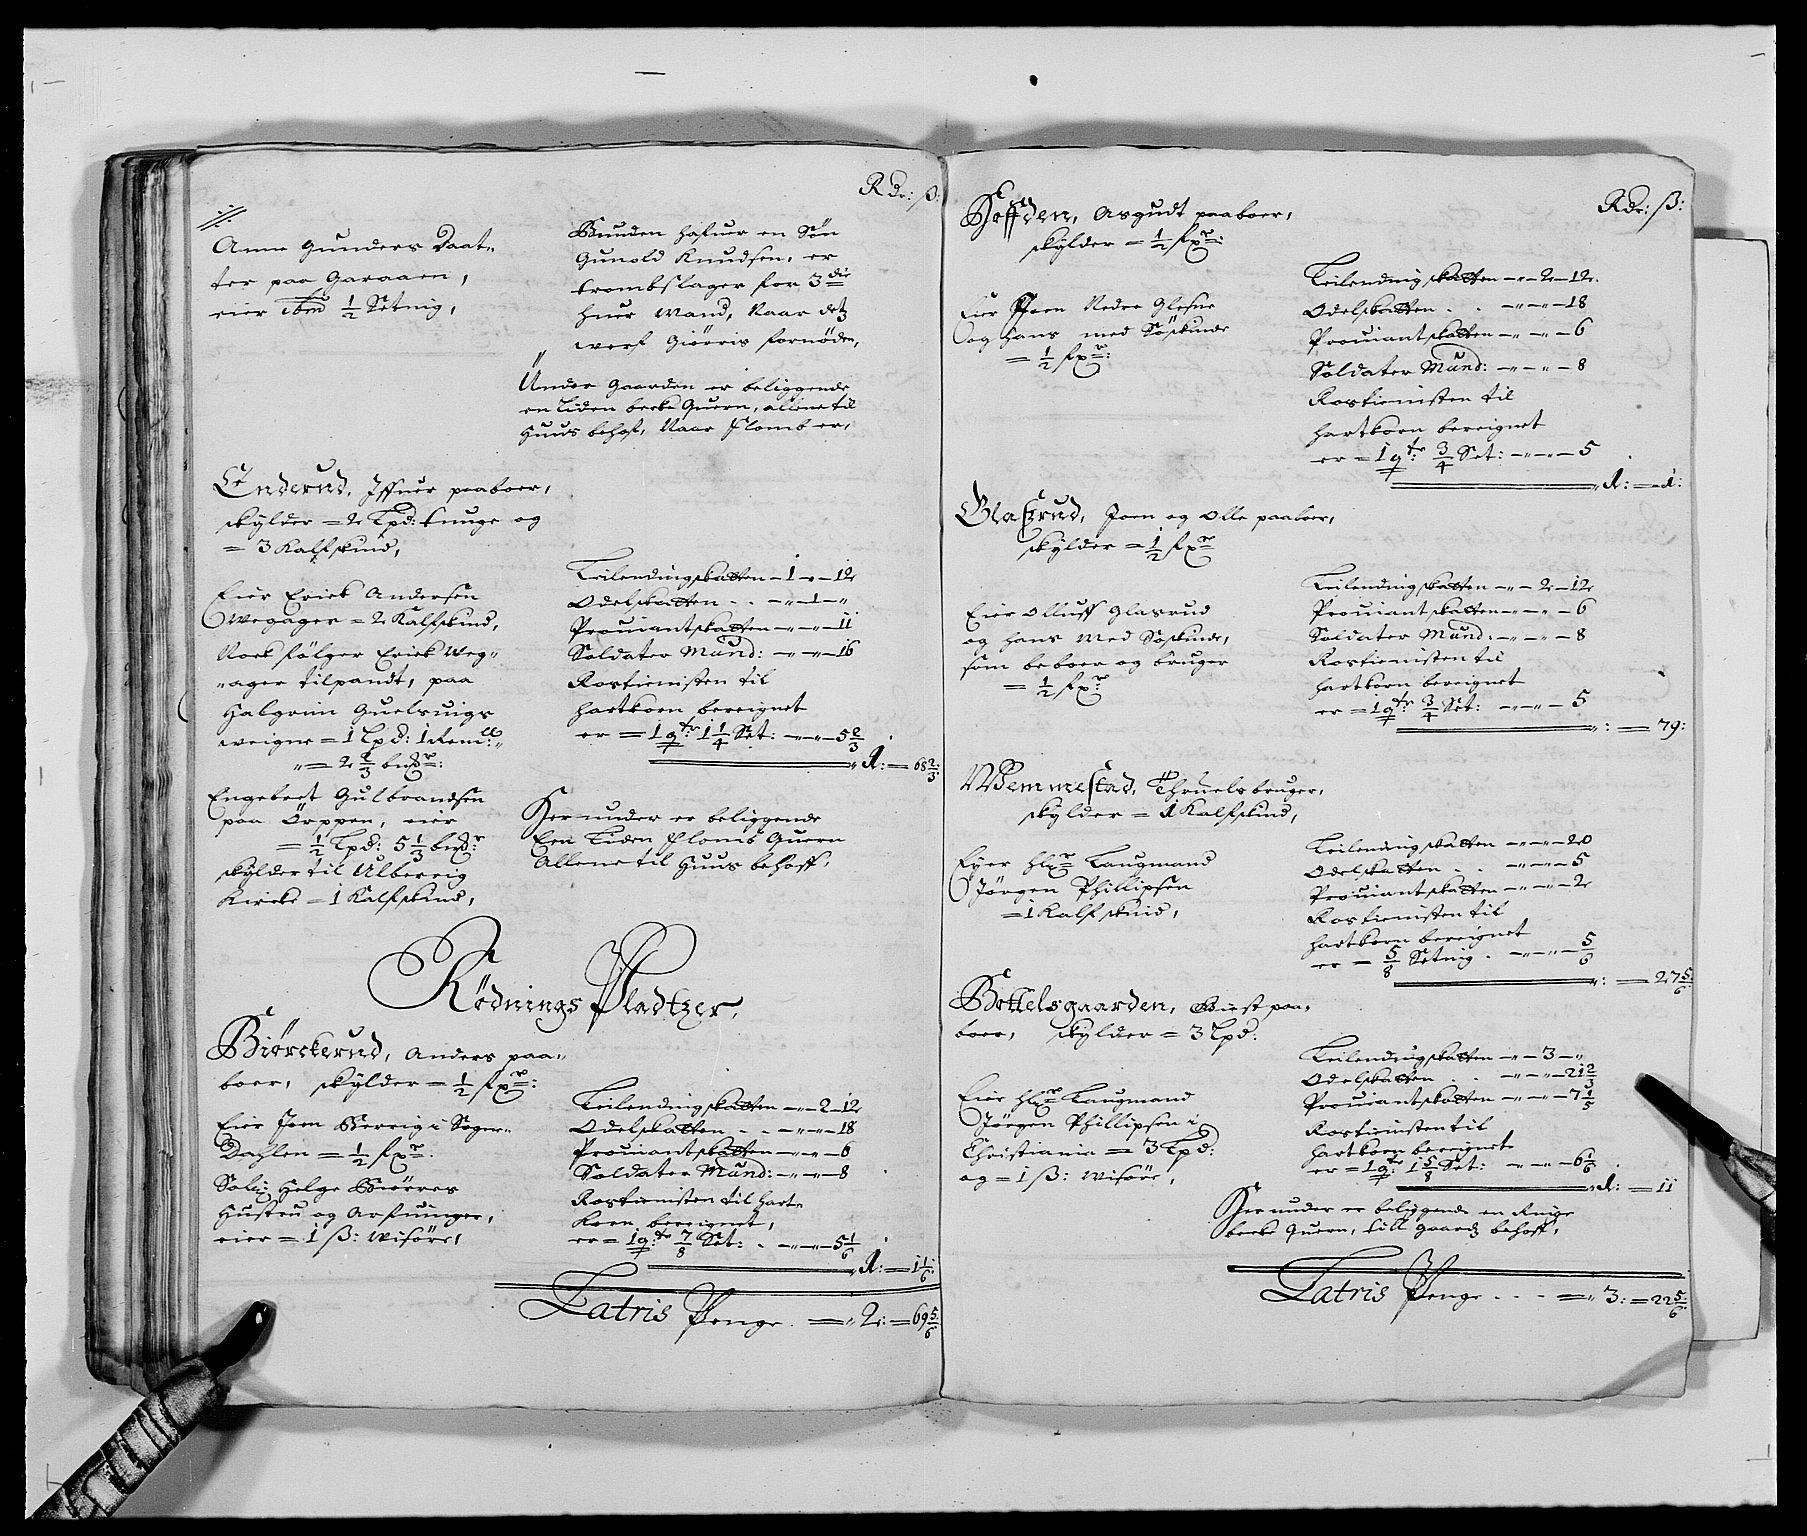 R Dr: ß:
Anne Gunders Daat-
ter paa Garaaen,
eier ibm ½ Setnig,
Bunden hafuer en Sön
Gunold Knudsen, er
trombslager for 3die
huer Mand, Naar det
werf Giörris fornöden,
Under Gaarden er beliggende
en liden becke Quern, allene til
Huus behof, Naar Flomb er,
Enderud, Iffuer paaboer,
skylder = 2 Lpd: tunge og
= 3 Kalfskind,
Eier Erick Andersen
Wegager = 2 Kalfskind,
Nock fölger Erick Weg-
ager til pandt, paa
Halgrim Guelsuigs
weigne = 1 Lpd: 1 Reml:
= 2 2/3 bmr:
Engebret Gulbrandsen
paa Örppen, eier
= ½ Lpd: 5 1/3 bmr:
skylder til Ulbereig
Kircke = 1 Kalfskind,
Leilending skatten - 1 - 12
Odelskatten . . - 1 -
Prouiantskatten - - 11
Soldater Mund: - - 16
Rostienisten til
hartkorn bereignet
er = 1 qtr 1 1/4 Set: - - 5 2/3
1: = 68 2/3:
Her under er beliggende
Een Liden Flomb Quern
Allene til Huus behoff,
Rødnings Pladtzer,
Biørckerud, Anders paa-
boer, skylder = ½ fxr:
Eier Joen Berreig i Soger-
Dahlen = ½ fxr.
Sali: Helge Biörnes
Hustru og Arfuinger,
eier = 1 ß: Wisöre,
Leilending skatten - - 2 - 12
Odelskatten . . - - 18
Prouiantskatten - - 6
Soldater Mund: - - 8
Rostienisten til hart-
korn bereignet,
er = 1 qtr 7/8 Set: . - - 5 1/6
1: = 1 1/6:
Latris Penge . = 2: = 69 5/6
R dr: ß:
Hoffden, Asgudt paaboer,
skylder = ½ fxr:
Eier Joen Nedre Glesne
og hans med Söskinde
= ½ fxr:
Leilending skatten - - 2 - 12.
Odelskatten . . - - 18
Prouiantskatten - - 6
Soldater Mund: - - 8
Rostienisten til
hartkorn bereignet
er = 1 qtr 3/4 Set: - - 5
1: = 1:
Glasrud, Joen og Olle paaboer,
skylder = ½ fxr
Eier Olluff Glasrud
og hans Med Söskinde,
som beboer og bruger
= ½ fxr:
Leilending skatten - - 2 - 12
Prouiantskatten - - 6
Soldater Mund: - - 8
Rostienisten til
hartkorn bereignet
er = 1 qtr 3/4 Set: - - 5
: = 79:
Wemmestad, Thruels bruger,
skylder = 1 Kalfskind,
Eyer Hlr Laugmand
Jörgen Phillipsen
= 1 Kalfskind,
Leilending skatten - - 20
Odelskatten . . - - 5
Prouiantskatten - - 2
Rostienisten til
hartkorn bereignet
er = 5/8 Setnig . - - 5/6
: = 27 5/6
Bottelsgaarden, paa-
boer, skylder = 3 Lpd:
Eier Hlr Laugmand
Jörgen Phillipsen i
Christiania = 3 Lpd:
og = 1 ß: Wisöre,
Leilending skatten - - 3 -
Odelskatten . . - - 21 2/3
Prouiantskatten - - 7 1/5
Rostienisten til
hartkorn bereignet
er = 1 qtr 1 5/8 Set: - - 6 1/6
1: = 11
Her under er beliggende en Ringe
becke Quern, till Gaards behoff,
Latris Penge . . . = 3: = 22 5/6